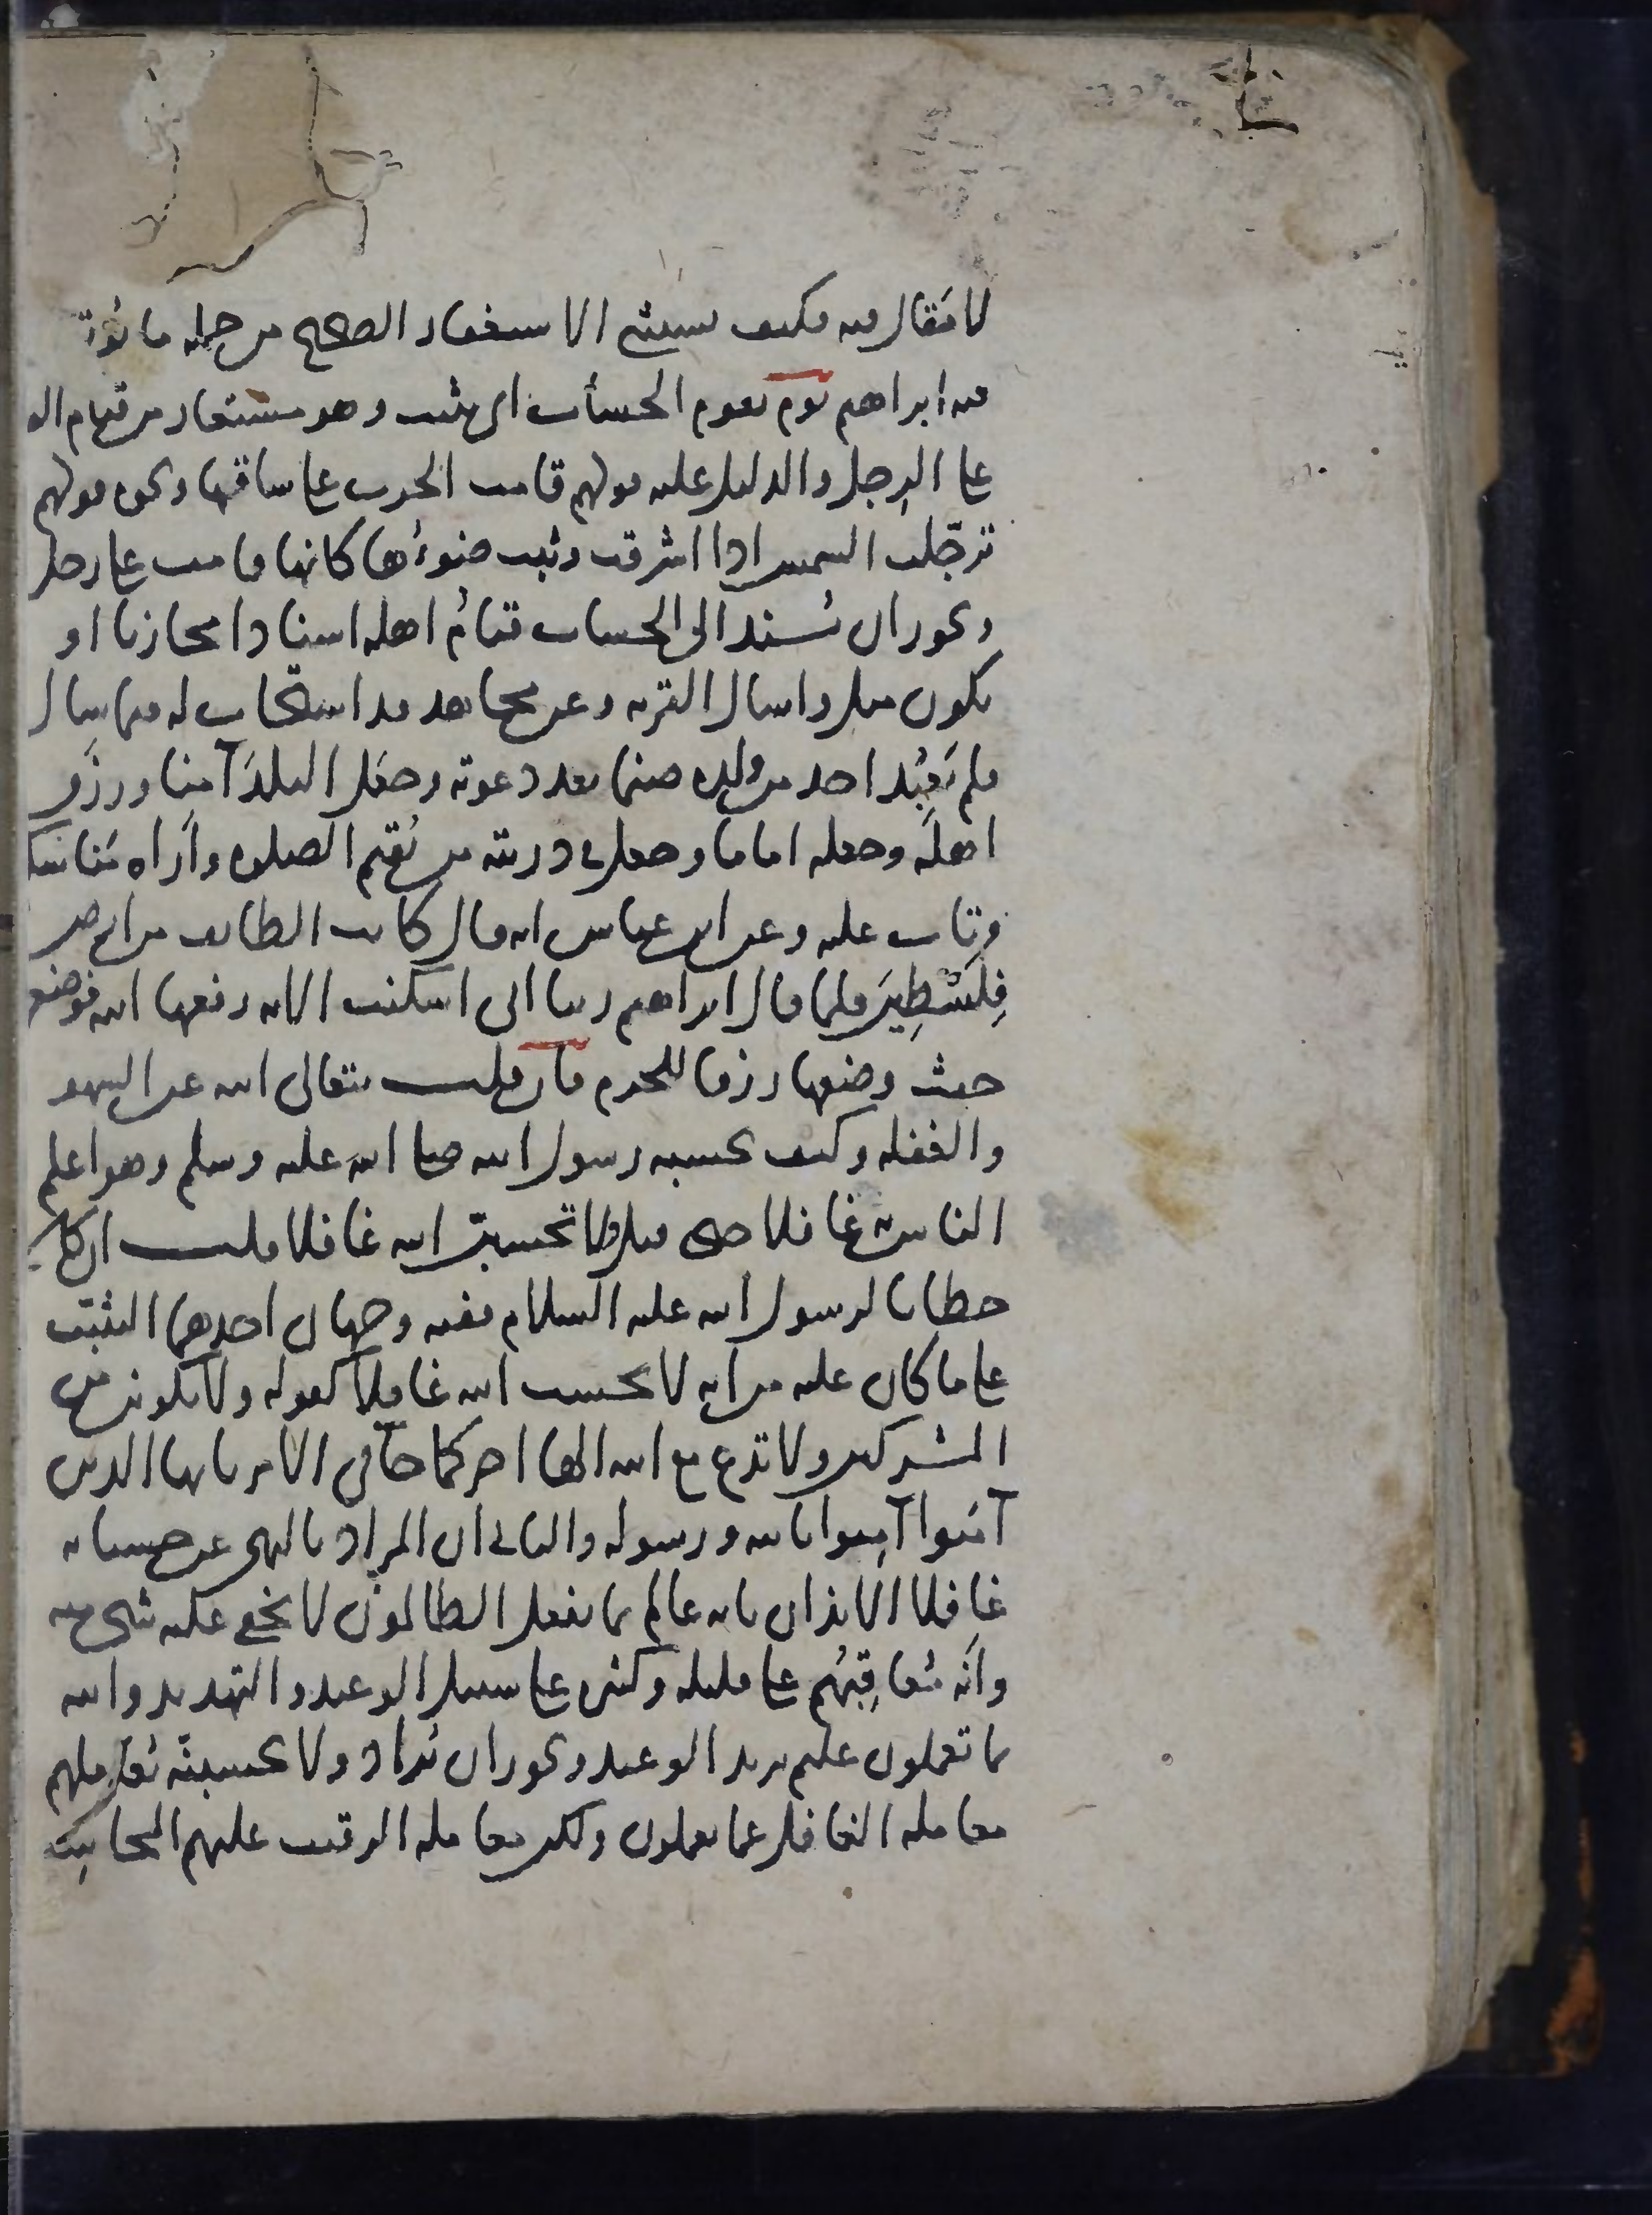 لا مقال فيه فكيف يستثنى الاستغفار الصحيح من جملة ما يؤتسى
فيه ابراهيم يوم يقوم الحساب اى يثبت وهو مستعار من قيام القائم
على الرجل والدليل عليه قولهم قامت الحرب على ساقها ونحوه قولهم
ترجّلت الشمس اذا اشرقت وثبت ضوءُها كانها قامت على رجل
ويجوز ان يُسند الى الحساب قيامُ اهله اسنادا مجازيا او
يكون مثل واسال القرية وعن مجاهد قد استجاب له فيما سال
فلم يَعبُد احد من ولده صنما بعد دعوته وجعل البلدَ آمنا ورزق
اهلَه وجعله اماما وجعل فى ذريته من يُقيم الصلوه وأراه مناسكه
وتاب عليه وعن ابن عباس انه قال كانت الطائف من ارض
فِلَسْطِين فلما قال ابراهيم ربنا انى اسكنت الايه رفعها الله فوضعها
حيث وضعها رزقا للحرم فان قلت يتعالى الله عن السهو
والغفله وكيف يحسبه رسول الله صلى الله عليه وسلم وهو اعلم
الناس به غافلا حتى قيل ولا تحسبنّ الله غافلا قلت ان كان
خطابا لرسول الله عليه السلام ففيه وجهان احدهما التثبيت
على ما كان عليه من انه لا يحسب الله غافلًا كقوله ولا تكونن من
المشركين ولا تدع مع الله الها اخر كما جاء فى الامر يا ايها الذين
آمَنوا آمِنوا بالله ورسوله والثانى ان المراد بالنهى عن حسبانه
غافلا الايذان بانه عالم بما يفعل الظالمون لا يخفى عليه شىء منه
وانَّه مُعاقِبُهم على قليله وكثيره على سبيل الوعيد والتهديد والله
بما تعملون عليم يريد الوعيد ويجوز ان يُراد ولا تحسبنّه يُعاملهم
معاملة الغافل عما يعملون ولكن معاملة الرقيب عليهم المحاسِب